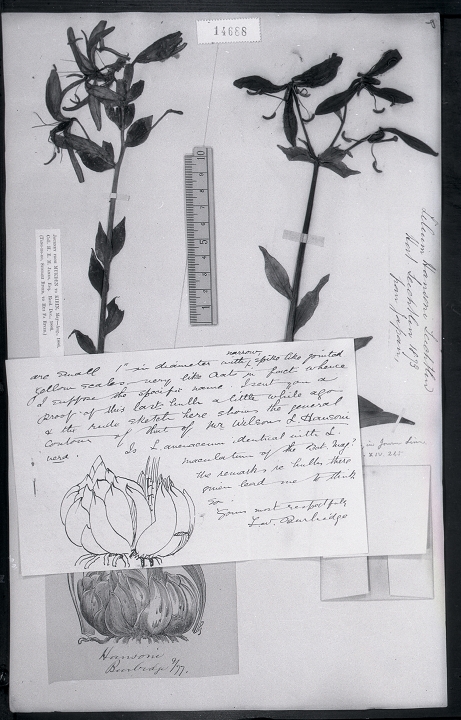 14688
Lilium Hansoni Leichtlin
Hort Leichtlin 1873
from Japan,
10
5
are small 1" in diameter with narrow, spike like pointed
yellow scales very like oats in fact whence
I suppose the specific name. I sent you a
proof of this last bulb a little while ago
& the rude sketch here shows the general
Contour of that of Mr Wilsons L Hanson
Is L. avenaceum identical with L.
maculatum of the Bot. Mag?
the remarks re bulbs there
given lead me to think
so.
Yours most respectfully
F.W. Burbidge
Hansoni
Burbidge 9/77.